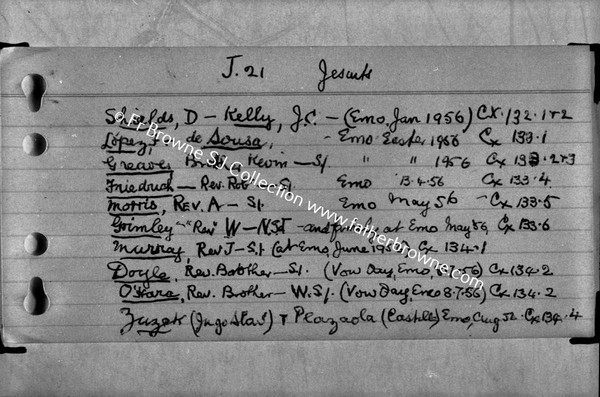 J. 21 Jesuits
Shields, D - Kelly, J.C. - (Emo. Jan 1956) Cx. 132. 1+2
López, de Sousa, - Emo Easter 1956 Cx 133.1
Greaves Kevin - S.J. " " 1956 Cx 133.2+3
Friedrich - Rev. Rob S.J. Emo 13.4.56 Cx 133.4
Morris, Rev. A - S.J. Emo May 56 - Cx 133.5
Grimley - "Rev" W - N.S.J. - and family at Emo May 56, Cx 133.6
Murray, Rev J - S.J. (at Emo, June 1956) Cx 134.1
Doyle, Rev. Brother - S.J. (Vow Day, Emo, 8.7.56) Cx 134.2
O'Hara, Rev. Brother - W. S.J. (Vow Day, Emo 8.7.56) Cx 134.2
Zuzek (Jugo Slav) + Plazaola (Castile) Emo, Aug 52. Cx 134.4
© Fr Browne SJ Collection www.fatherbrowne.com